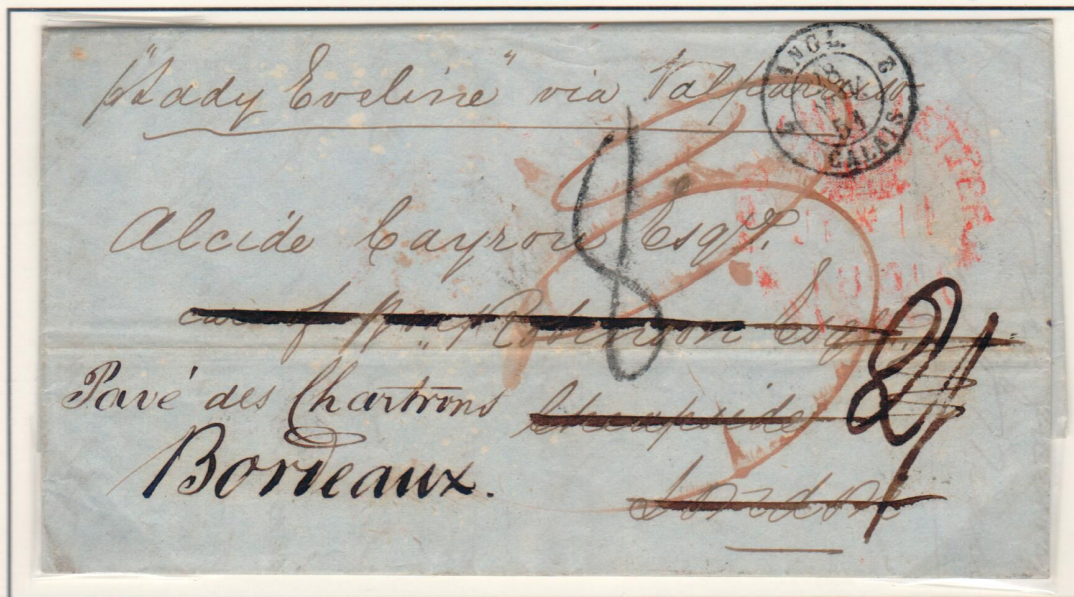 p "Lady Eveline" via Valparaiso
2 ANGL. 2
18
51
CALAIS
Alcide Cayrou Esqre.
8
care of Wm. Robinson Esqre.
Pavé des Chartrons Cheapside
2/
Bordeaux.
London